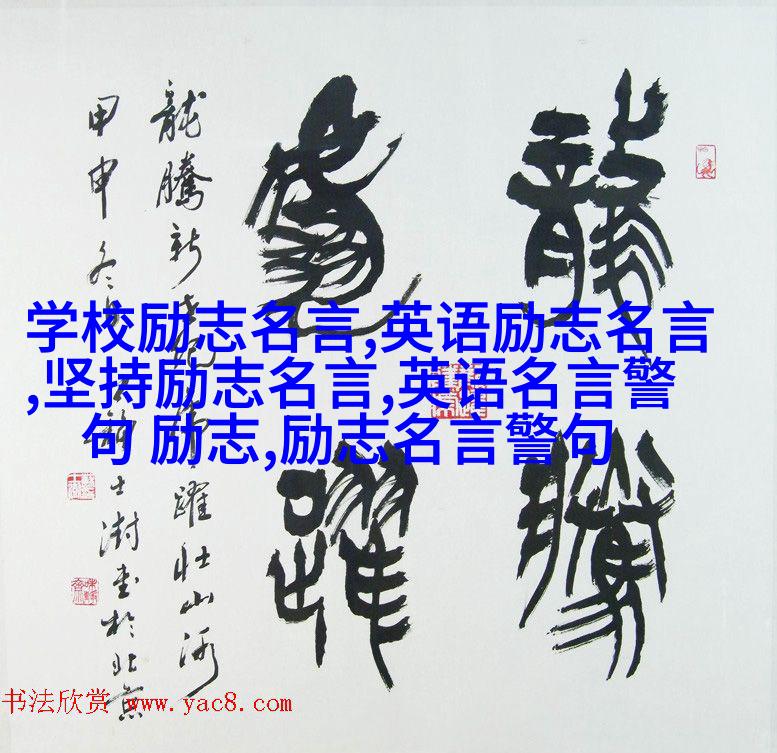 龍騰
虎躍
龍騰新世紀虎躍壯山河
甲申冬 士澍書於北京
学校励志名言,英语励志名言
,坚持励志名言,英语名言警
句 励志,励志名言警句
书法欣赏 www.yac8.com